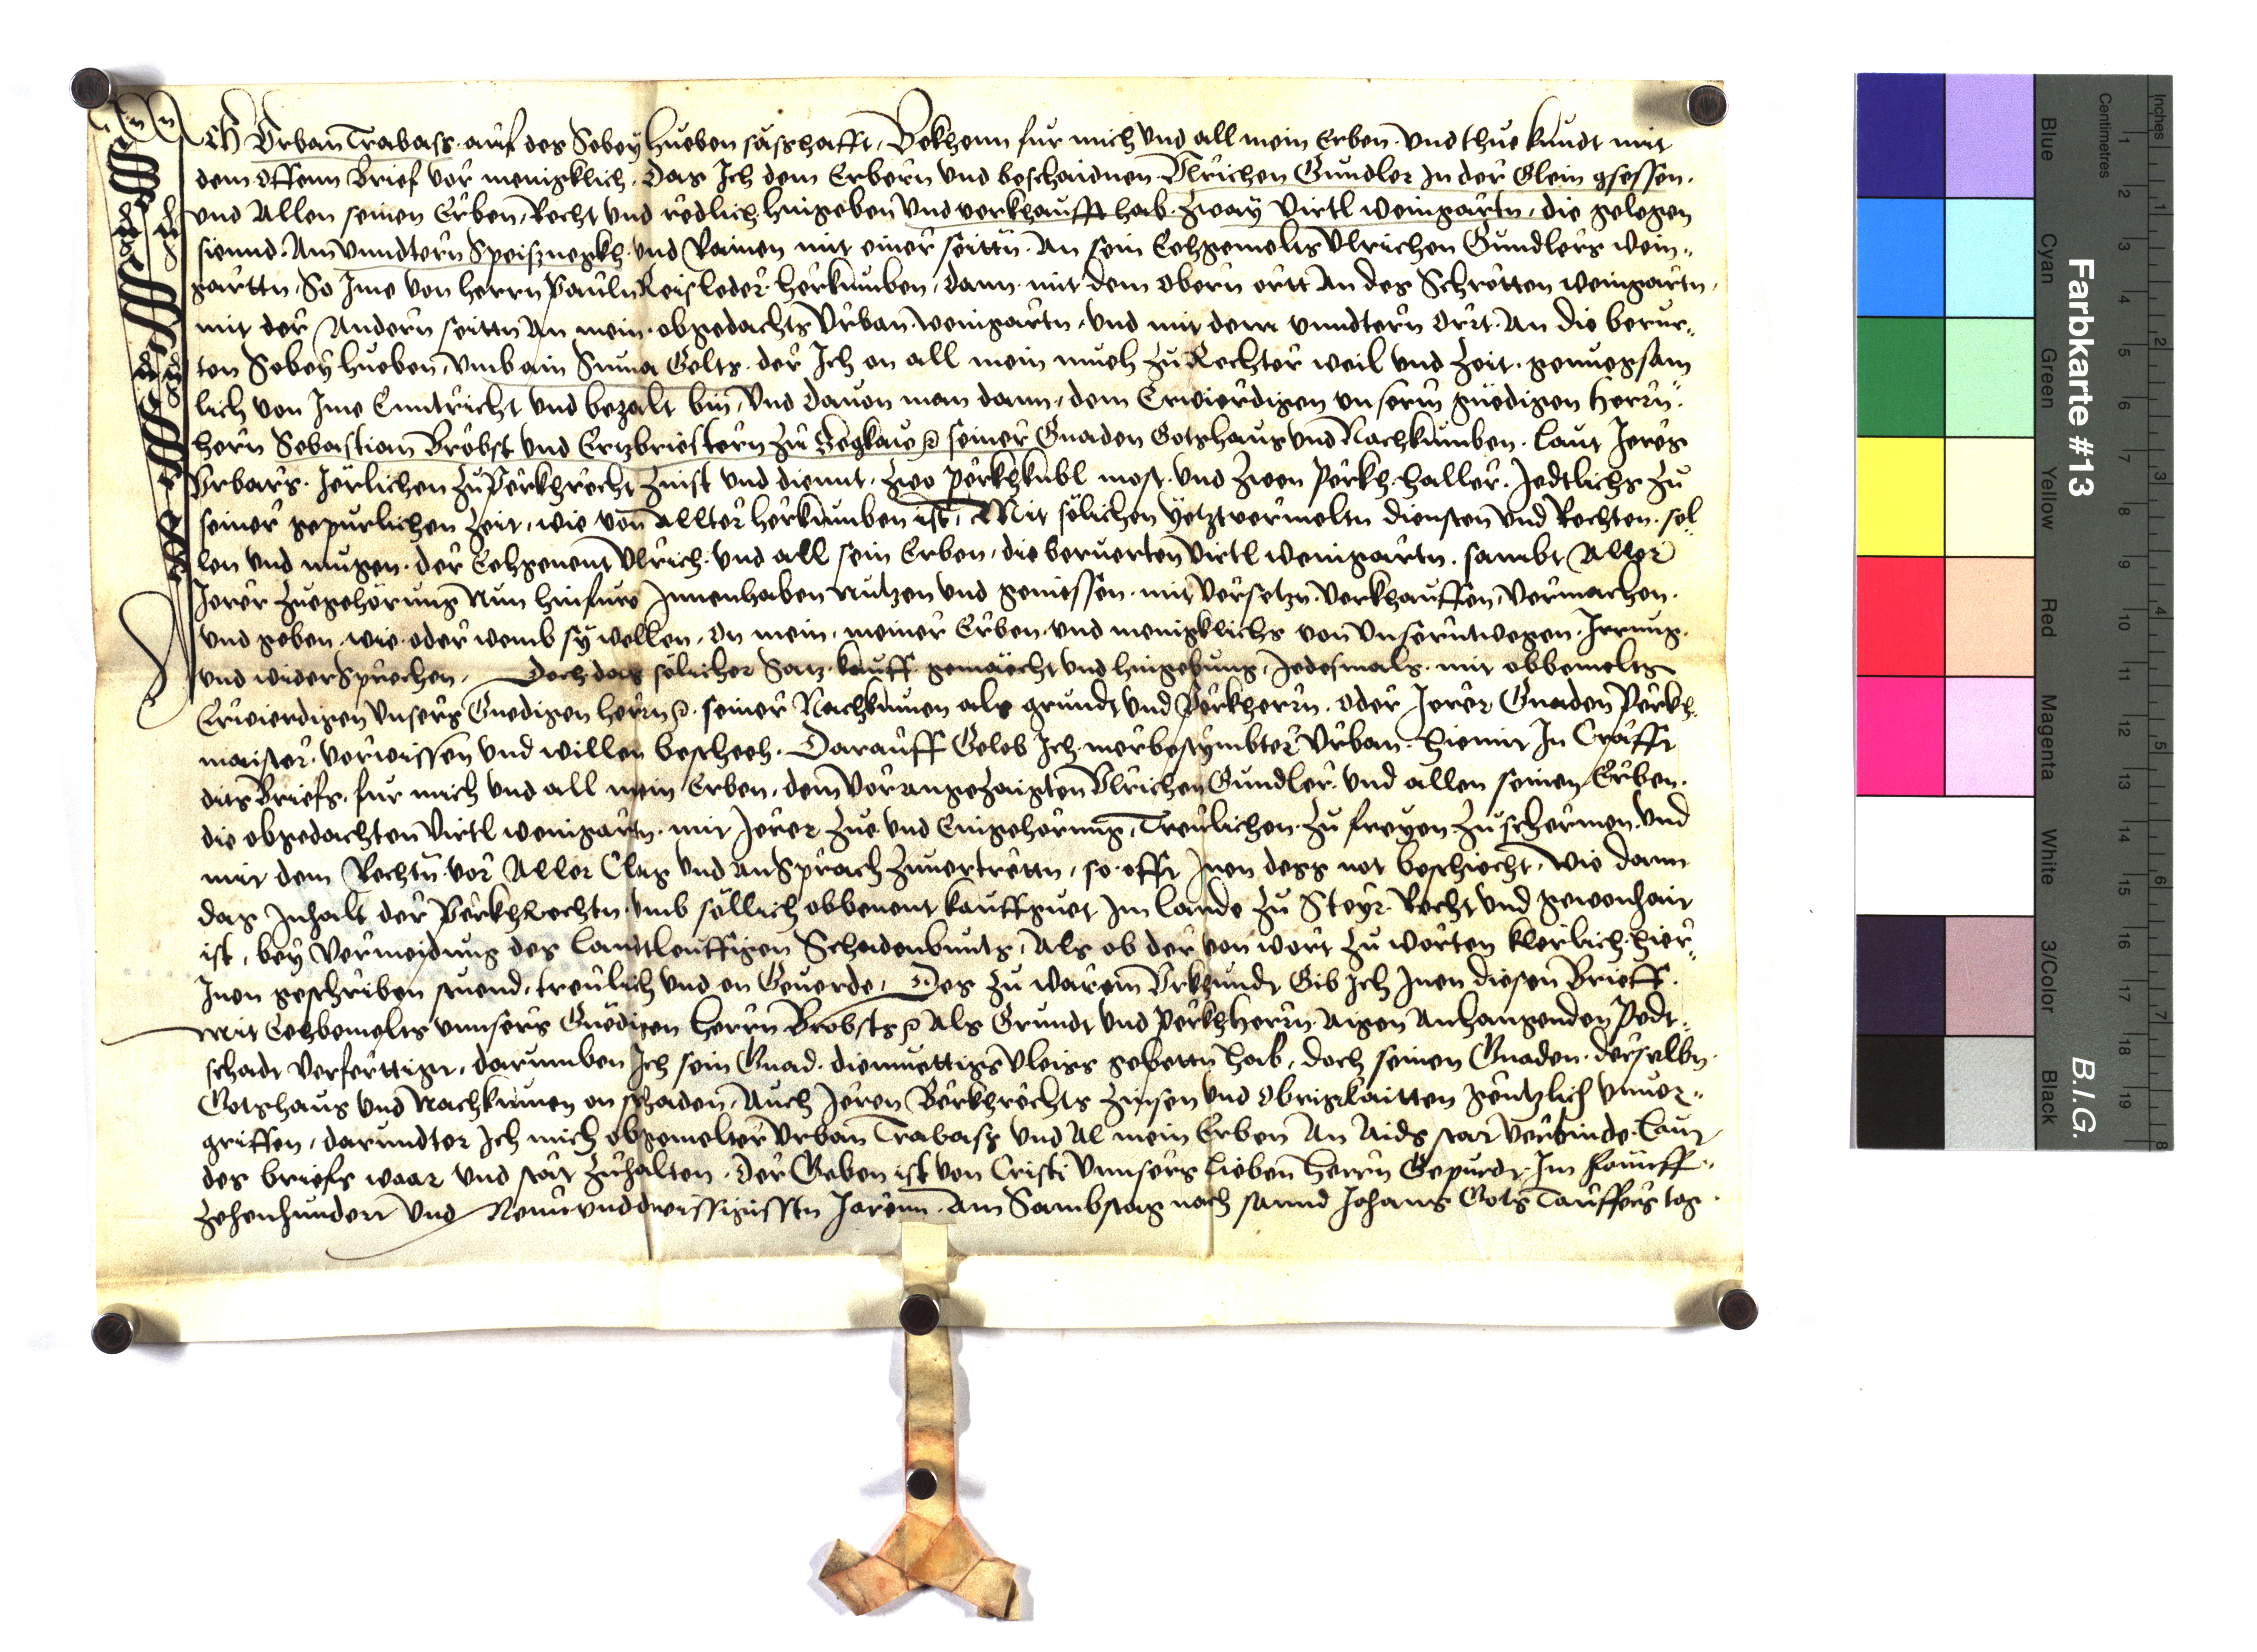 Ich Urban Trabass auf des Sebey Hueben säshafft, Bekhenn fur mich und all mein Erben und thue kundt mit
dem offenn Brief vor menigklich, Das Ich dem Erbern und beschaidnen Ulrichen Gundler In der Glein gsessen.
und Allen seinen Erben, Recht und redlich hingeben und verkhaufft hab. zway virtl weingartn, die gelegen
siennd. Am unndtern Speisznegkh und Rainen mit einer seittn An sein Eehgemelts Ulrichen Gundlers wein-
garttn. So Ime von herrn Pauln Reisleder herkumben, dann mit dem obern ortt An des Schrotten weingartn,
mit der Andern seittn An mein obgedachts Urban weingartn, und mit dem unndtern Ortt. An die berur-
ten Sebey hueben, umb ain Suma Gelts. der Ich on all mein mueh zu Rechter weil und Zeit. genuegsam
lich von Ime Enntricht und bezalt bin, Und dauon man dann, dem Erwierdigen unserm gnedigen Herrn
Herrn Sebastian Brobst und Ertzbriestern zu Segkaw seiner Gnaden Gotshaus und Nachkumben. laut Jeres
Urbars. Jerlichen zu Perkhrecht Zinst und diennt. zwo perkhkubl most. und zwen Perkh haller. Jedtlichs zu
seiner gepurlichen Zeit, wie von Allter herkumben ist, Mit solichen yetztvermeltn diensten und Rechten. sol-
len und mugen. der Eehgenent Ulrich. und all sein Erben, die beruerten virtl weingartn. sambt Aller
Jerer Zuegehorung Nun hinfuro Innenhaben nutzen und geniessen. mit versetzn. verkhauffen, vermachen.
und geben. wie oder wemb sy wellen, On mein, meiner Erben, und menigklichs von unserntwegen. Irrung.
und widersprechen. Doch das solicher Satz kauff gemäecht und hingebung, Jedesmals. mit obbemelts
Erwierdigen unsers Gnedigen herrn. seiner Nachkumen als grundt und Perkherrn. oder Jerer Gnaden Perkh
maister. vorwissen und willen bescheeh. Darauff Gelob Ich merbestymbter Urban. hiemit In Crafft
dits Briefs, fur mich und all mein Erben, dem vorangezaigten Ulrichen Gundler. und allen seinen Erben.
die obgedachten virtl weingartn. mit Jerer Zue und Eingehorung, Treulichen. zu freyen zu schermen. und
mit dem Rechtn vor Aller Clag und Ansprach zuuertrettn, so offt Inen dess not beschiecht, wie dann
das Inhalt der Perkhrechtn umb sollich obbenent kauffguet Im Lande zu Steyr Recht und gewonhait
ist, bey vermeidung des lanndtleuffigen Schadenbunts, Als ob der von wort zu worten klerlich hier-
Inen geschriben stuend, treulich und on Geuerde, Des zu warem Urkhundt Gib Ich Inen diesen Brieff.
Mit Eehbemelts unnsers Gnedigen herrn Brobsts Als Grundt und Perkhherrn Aigen Anhangenden Pedt-
schadt verferttigt, darumben Ich sein Gnad. diemuettigs vleiss gebettn hab, doch seinen Gnaden. derselbn.
Gotshaus und Nachkumen on schaden, Auch Jeren Berkhrechts Zinsen und Obrigkaitten genntzlich unuer-
griffen, darundter Ich mich obgemelter Urban Trabass und Al mein Erben An Aids stat verbinde. Laut
des briefs waar und stät Zuhalten. Der Geben ist von Cristi unnsers lieben herrn Gepurdt. Im Fünff-
zehenhundert und Neunundtreissigissten Jarenn. Am Sambstag nach sannd Johanns Gots Tauffers tag.
Farbkarte #13
B.I.G.
Inches
Centimetres
1 2 3 4 5 6 7 8
1 2 3 4 5 6 7 8 9 10 11 12 13 14 15 16 17 18 19
Blue
Cyan
Green
Yellow
Red
Magenta
White
3/Color
Black